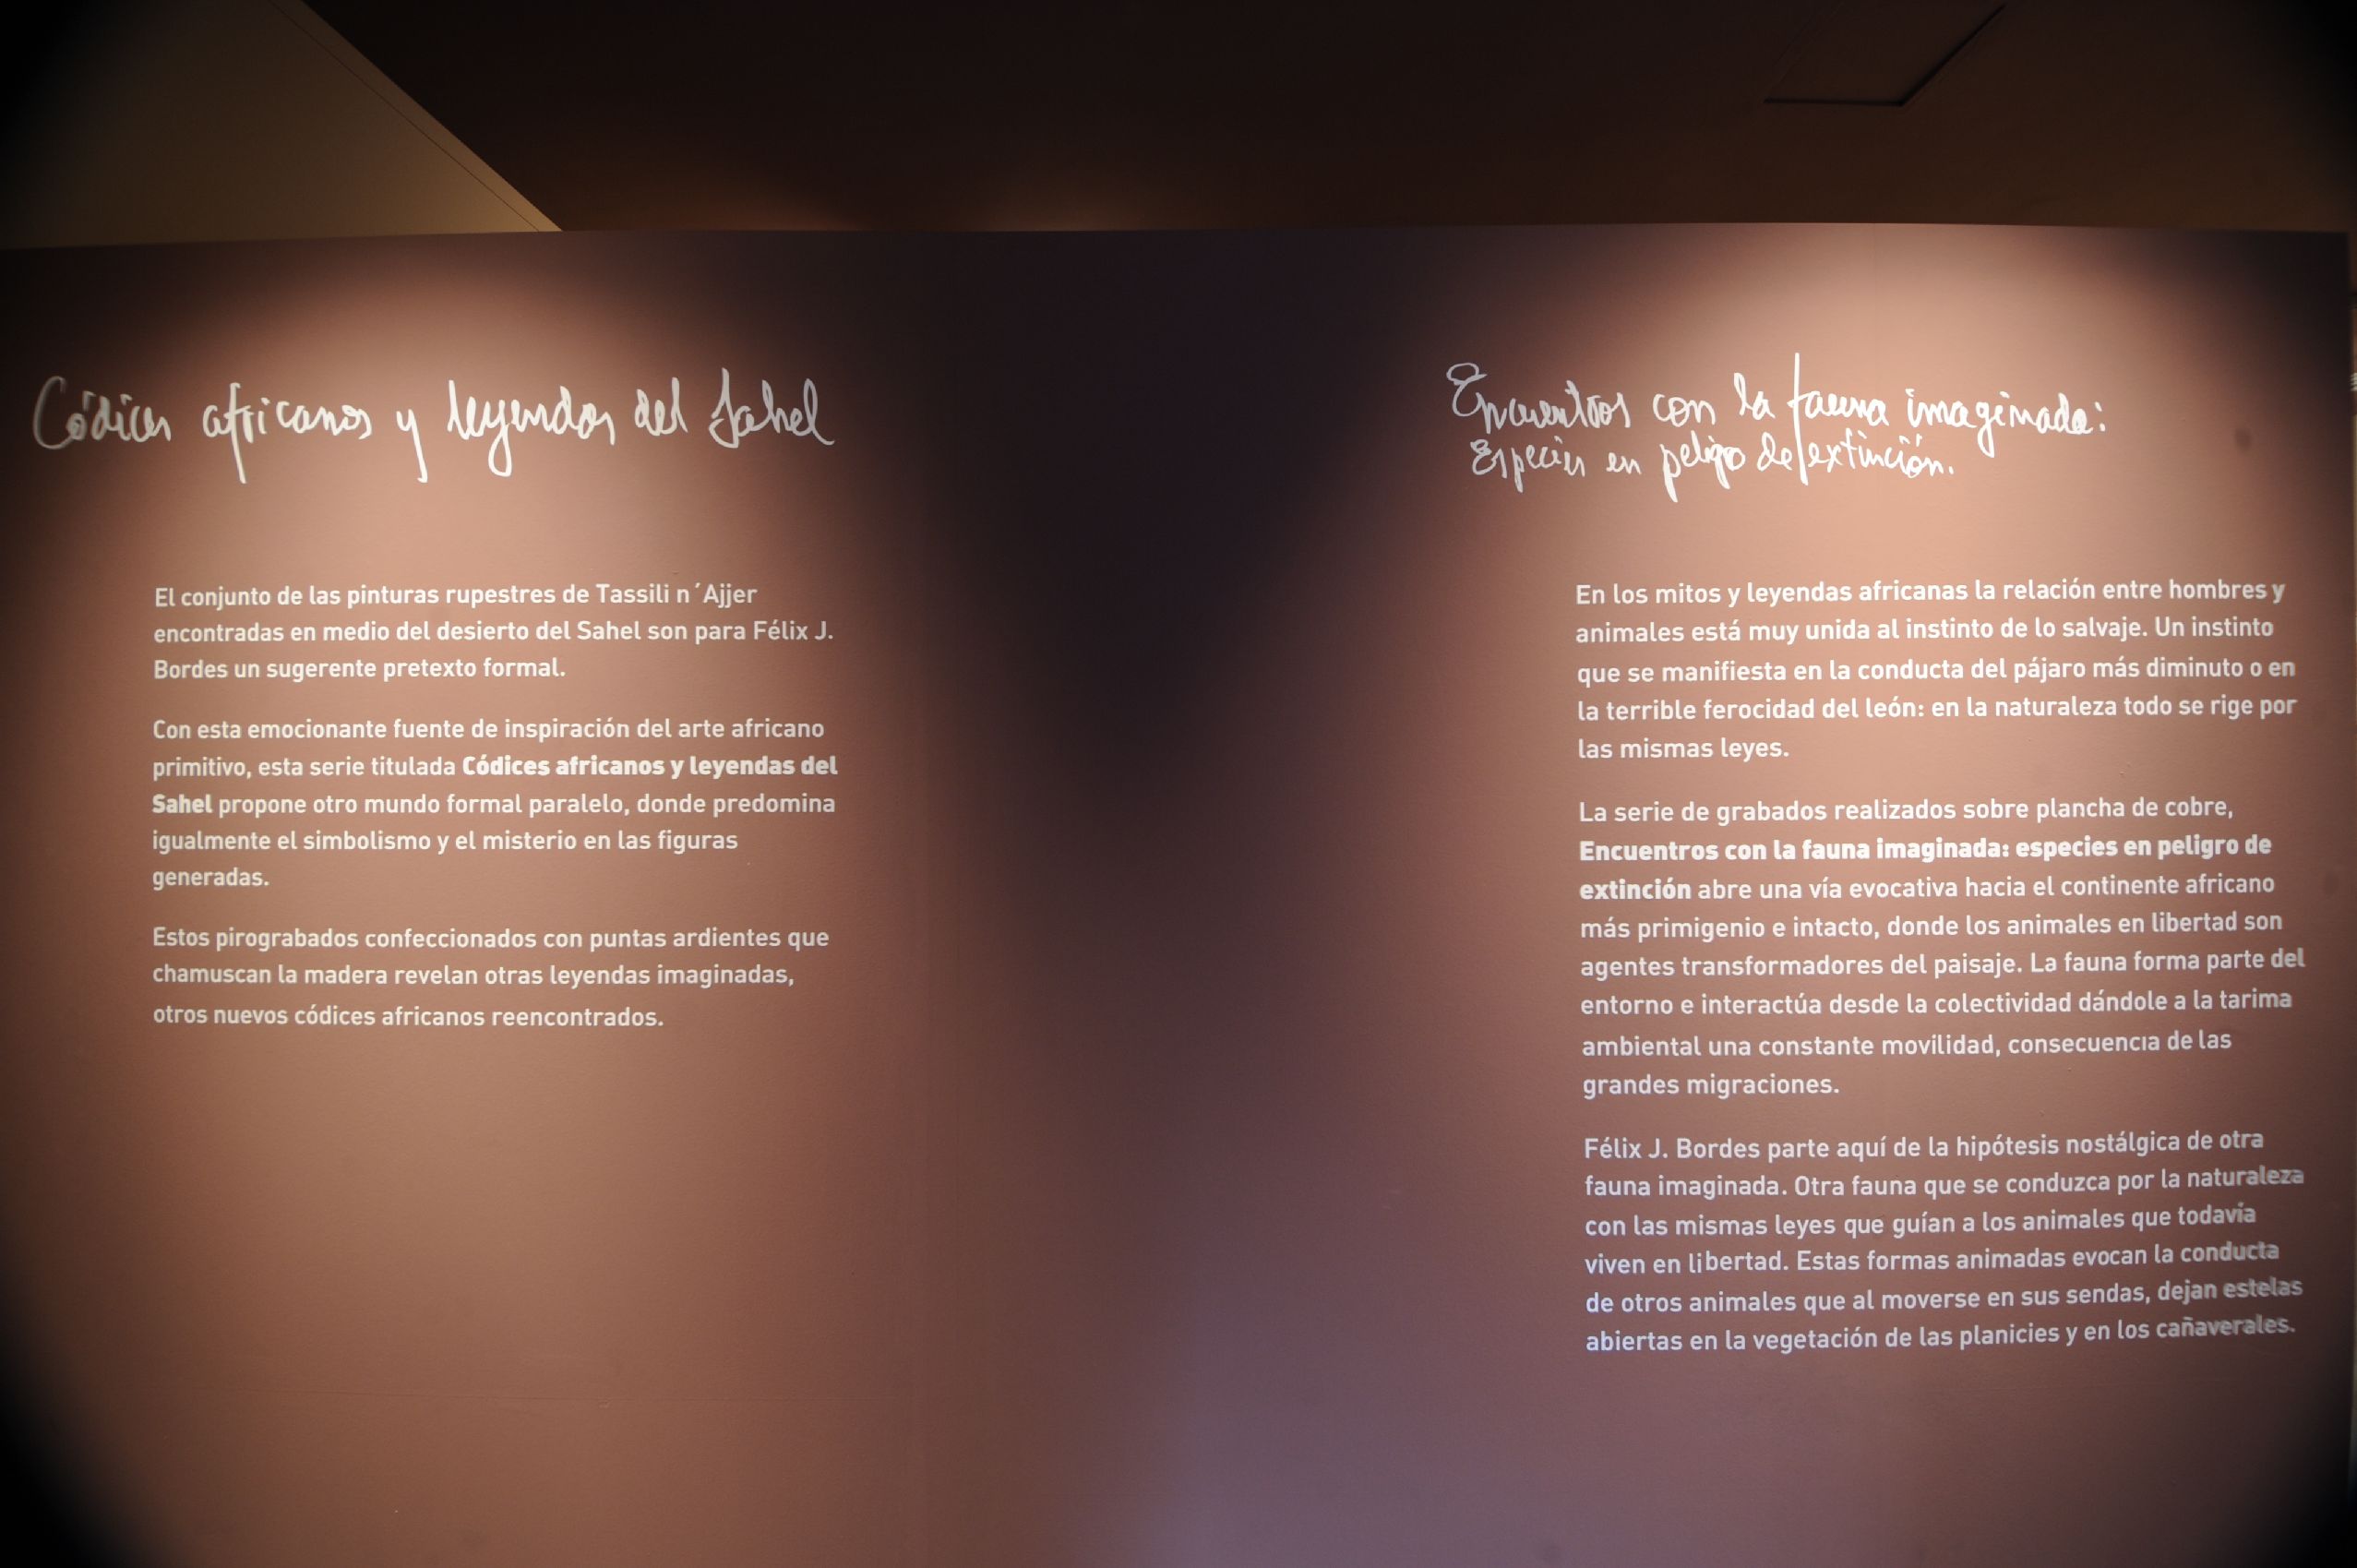 Códices africanos y leyendas del Sahel
El conjunto de las pinturas rupestres de Tassili n´Ajjer
encontradas en medio del desierto del Sahel son para Félix J.
Bordes un sugerente pretexto formal.
Con esta emocionante fuente de inspiración del arte africano
primitivo, esta serie titulada Códices africanos y leyendas del
Sahel propone otro mundo formal paralelo, donde predomina
igualmente el simbolismo y el misterio en las figuras
generadas.
Estos pirograbados confeccionados con puntas ardientes que
chamuscan la madera revelan otras leyendas imaginadas,
otros nuevos códices africanos reencontrados.
Encuentros con la fauna imaginada:
Especies en peligro de extinción.
En los mitos y leyendas africanas la relación entre hombres y
animales está muy unida al instinto de lo salvaje. Un instinto
que se manifiesta en la conducta del pájaro más diminuto o en
la terrible ferocidad del león: en la naturaleza todo se rige por
las mismas leyes.
La serie de grabados realizados sobre plancha de cobre,
Encuentros con la fauna imaginada: especies en peligro de
extinción abre una vía evocativa hacia el continente africano
más primigenio e intacto, donde los animales en libertad son
agentes transformadores del paisaje. La fauna forma parte del
entorno e interactúa desde la colectividad dándole a la tarima
ambiental una constante movilidad, consecuencia de las
grandes migraciones.
Félix J. Bordes parte aquí de la hipótesis nostálgica de otra
fauna imaginada. Otra fauna que se conduzca por la naturaleza
con las mismas leyes que guían a los animales que todavía
viven en libertad. Estas formas animadas evocan la conducta
de otros animales que al moverse en sus sendas, dejan estelas
abiertas en la vegetación de las planicies y en los cañaverales.